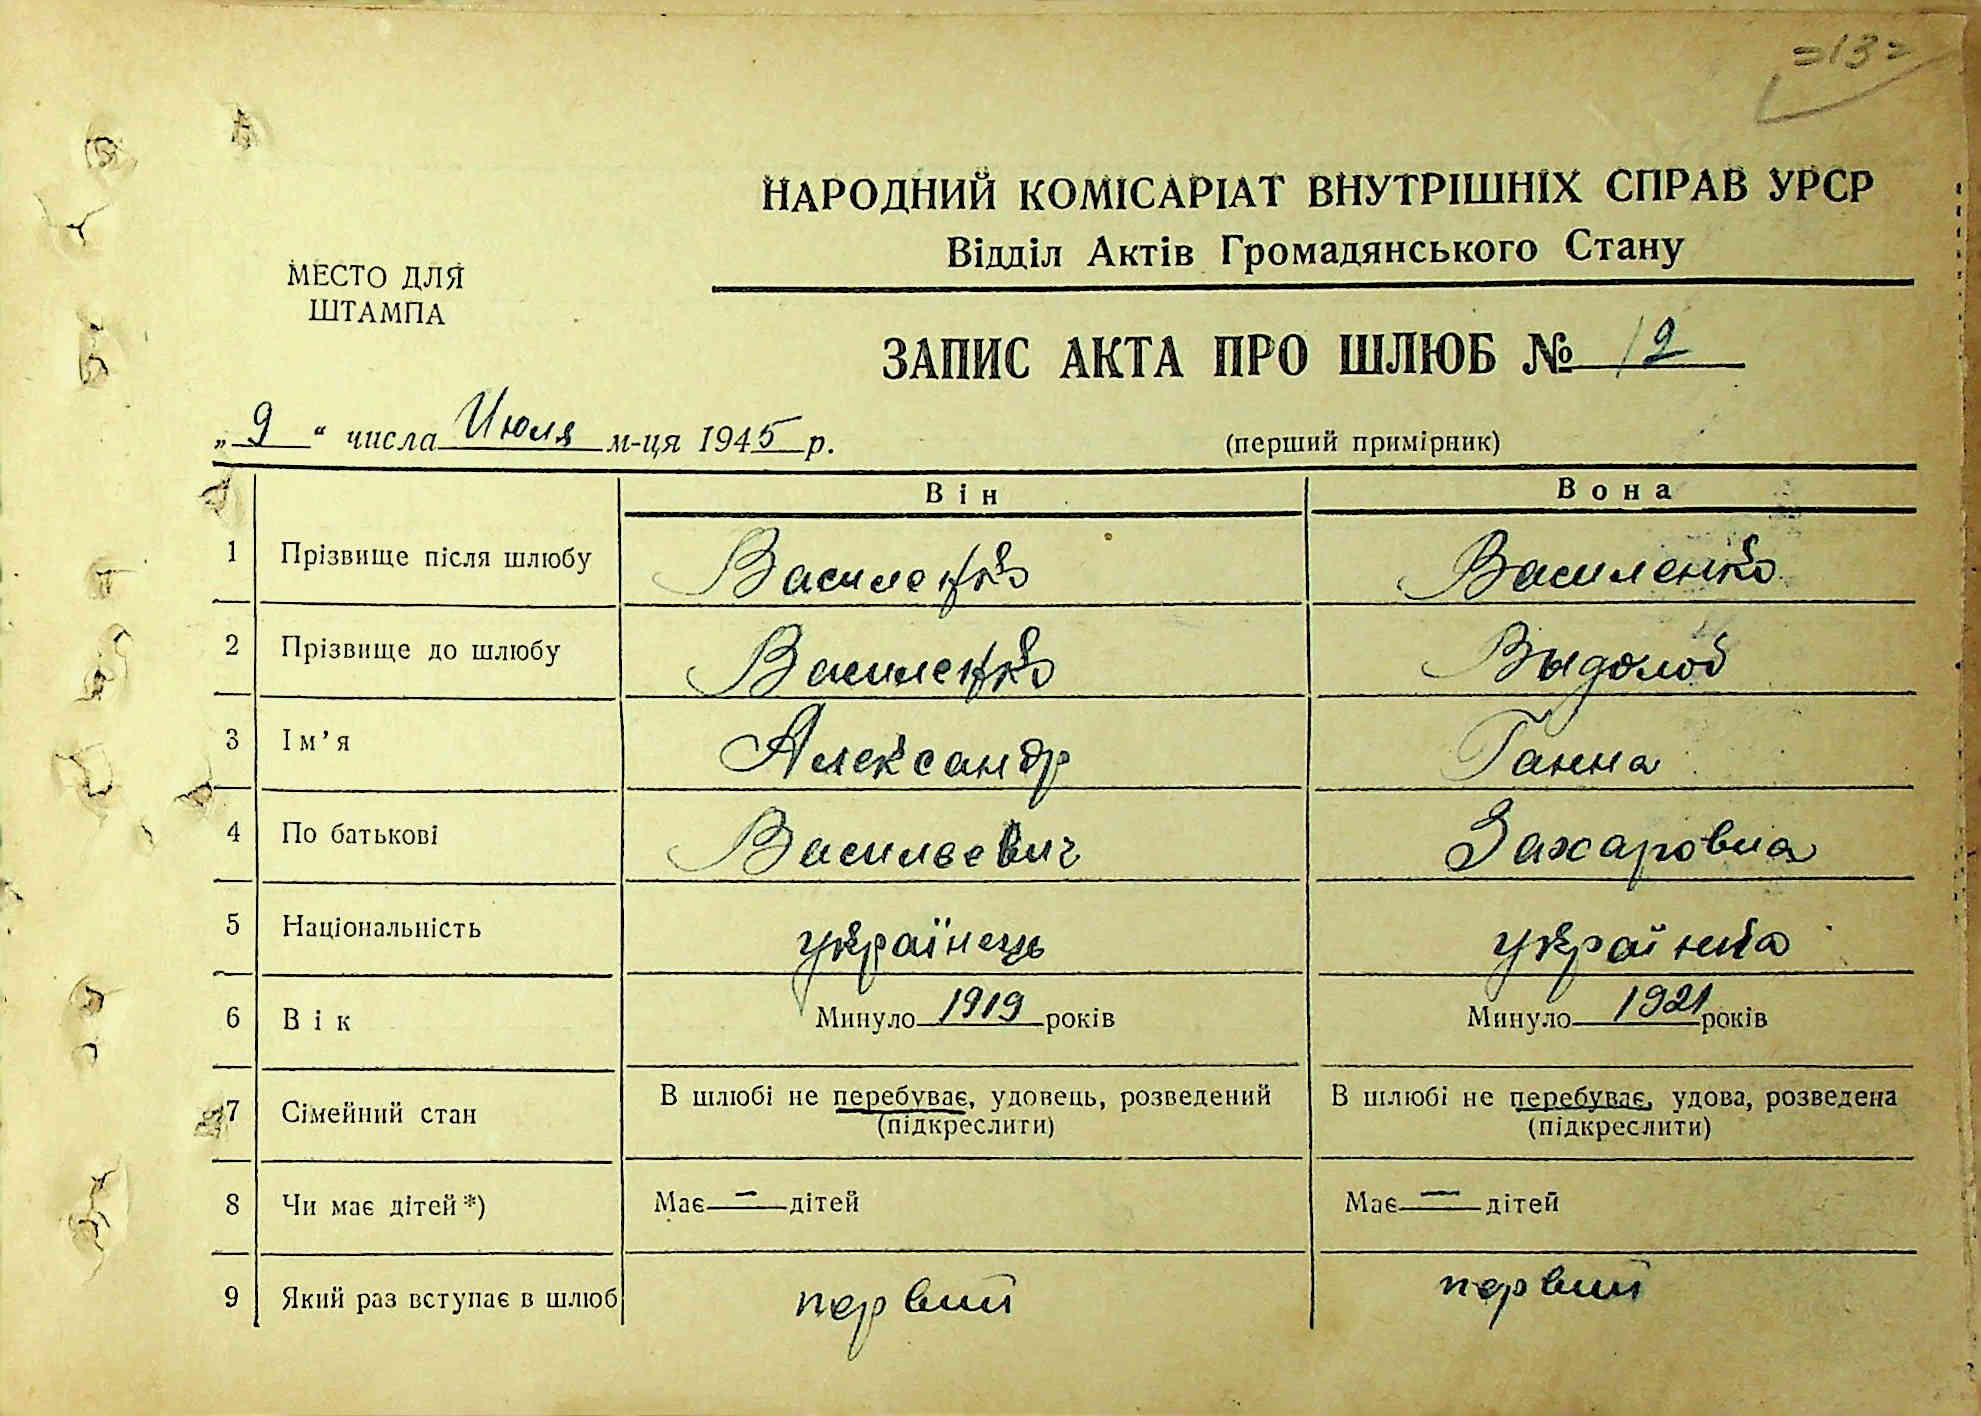 =13=
НАРОДНИЙ КОМІСАРІАТ ВНУТРІШНІХ СПРАВ УРСР
Відділ Актів Громадянського Стану
МЕСТО ДЛЯ
ШТАМПА
ЗАПИС АКТА ПРО ШЛЮБ № 12
„ 9 “ числа Июля м-ця 1945 р.
(перший примірник)
Він Вона
1 Прізвище після шлюбу Василенко Василенко
2 Прізвище до шлюбу Василенко Выдолоб
3 Ім’я Александр Ганна
4 По батькові Васильевич Захаровна
5 Національність українець українка
6 Вік Минуло 1919 років Минуло 1921 років
7 Сімейний стан В шлюбі не перебуває, удовець, розведений В шлюбі не перебуває, удова, розведена
(підкреслити) (підкреслити)
8 Чи має дітей *) Має — дітей Має — дітей
9 Який раз вступає в шлюб первий первий